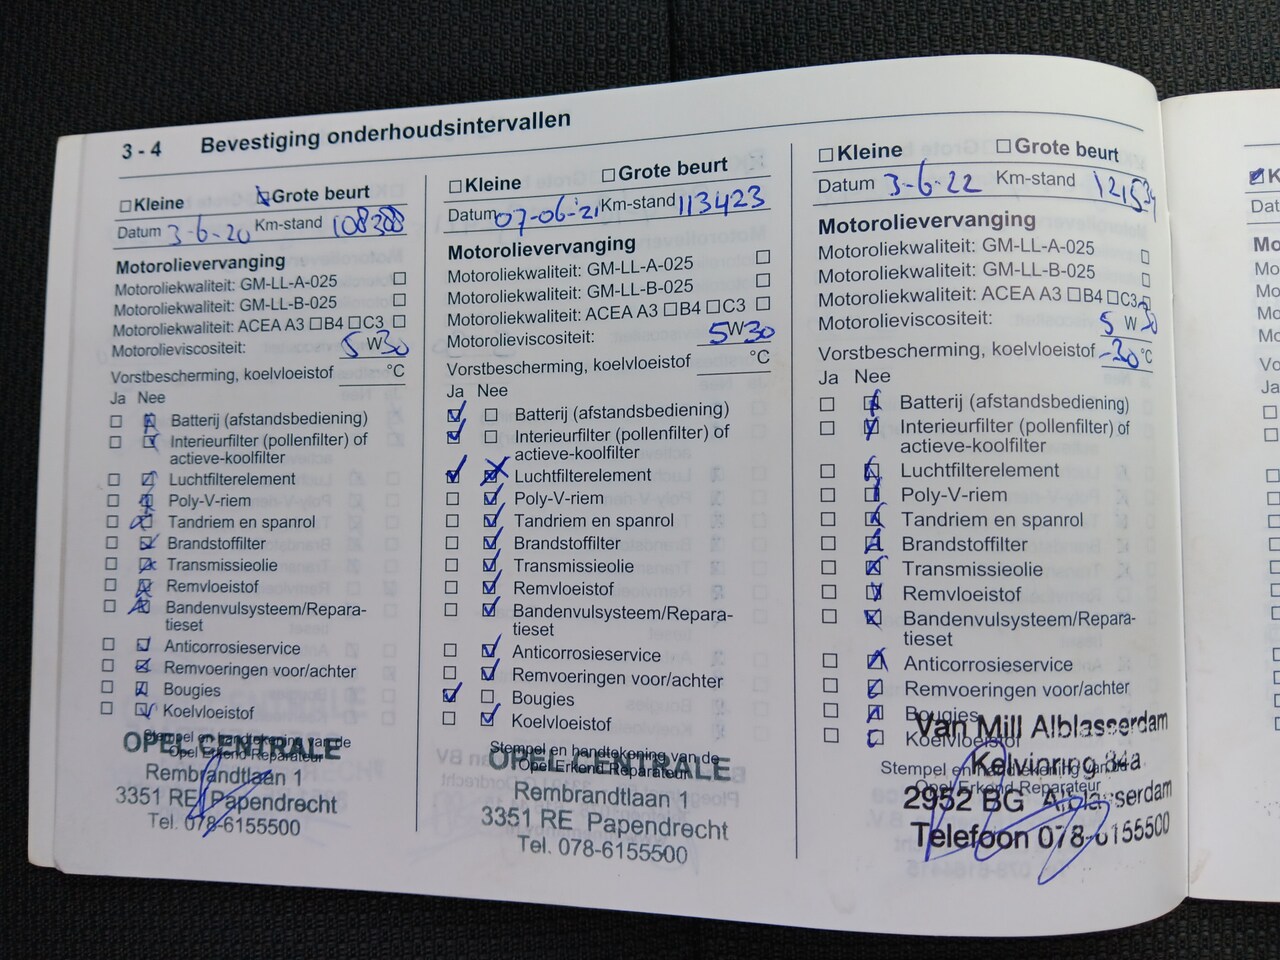 3 - 4 Bevestiging onderhoudsintervallen
☐Kleine ☑Grote beurt
Datum 3-6-20 Km-stand 108388
Motorolievervanging
Motoroliekwaliteit: GM-LL-A-025 ☐
Motoroliekwaliteit: GM-LL-B-025 ☐
Motoroliekwaliteit: ACEA A3 ☐B4 ☐C3 ☐
Motorolieviscositeit: 5 W 30
Vorstbescherming, koelvloeistof °C
Ja Nee
Batterij (afstandsbediening)
Interieurfilter (pollenfilter) of
actieve-koolfilter
Luchtfilterelement
Poly-V-riem
Tandriem en spanrol
Brandstoffilter
Transmissieolie
Remvloeistof
Bandenvulsysteem/Repara-
tieset
Anticorrosieservice
Remvoeringen voor/achter
Bougies
Koelvloeistof
Stempel en handtekening van de
Opel Erkend Reparateur
OPEL CENTRALE
Rembrandtlaan 1
3351 RE Papendrecht
Tel. 078-6155500
☐Kleine ☐Grote beurt
Datum 07-06-'21 Km-stand 113423
Motorolievervanging
Motoroliekwaliteit: GM-LL-A-025 ☐
Motoroliekwaliteit: GM-LL-B-025 ☐
Motoroliekwaliteit: ACEA A3 ☐B4 ☐C3 ☐
Motorolieviscositeit: 5W30
Vorstbescherming, koelvloeistof °C
Ja Nee
Batterij (afstandsbediening)
Interieurfilter (pollenfilter) of
actieve-koolfilter
Luchtfilterelement
Poly-V-riem
Tandriem en spanrol
Brandstoffilter
Transmissieolie
Remvloeistof
Bandenvulsysteem/Repara-
tieset
Anticorrosieservice
Remvoeringen voor/achter
Bougies
Koelvloeistof
Stempel en handtekening van de
Opel Erkend Reparateur
OPEL CENTRALE
Rembrandtlaan 1
3351 RE Papendrecht
Tel. 078-6155500
☐Kleine ☐Grote beurt
Datum 3-6-22 Km-stand
Motorolievervanging
Motoroliekwaliteit: GM-LL-A-025 ☐
Motoroliekwaliteit: GM-LL-B-025 ☐
Motoroliekwaliteit: ACEA A3 ☐B4 ☐C3 ☐
Motorolieviscositeit: 5 W 30
Vorstbescherming, koelvloeistof -30 °C
Ja Nee
Batterij (afstandsbediening)
Interieurfilter (pollenfilter) of
actieve-koolfilter
Luchtfilterelement
Poly-V-riem
Tandriem en spanrol
Brandstoffilter
Transmissieolie
Remvloeistof
Bandenvulsysteem/Repara-
tieset
Anticorrosieservice
Remvoeringen voor/achter
Bougies
Koelvloeistof
Stempel en handtekening van de
Opel Erkend Reparateur
Van Mill Alblasserdam
Kelvinring 34a
2952 BG Alblasserdam
Telefoon 078-6155500